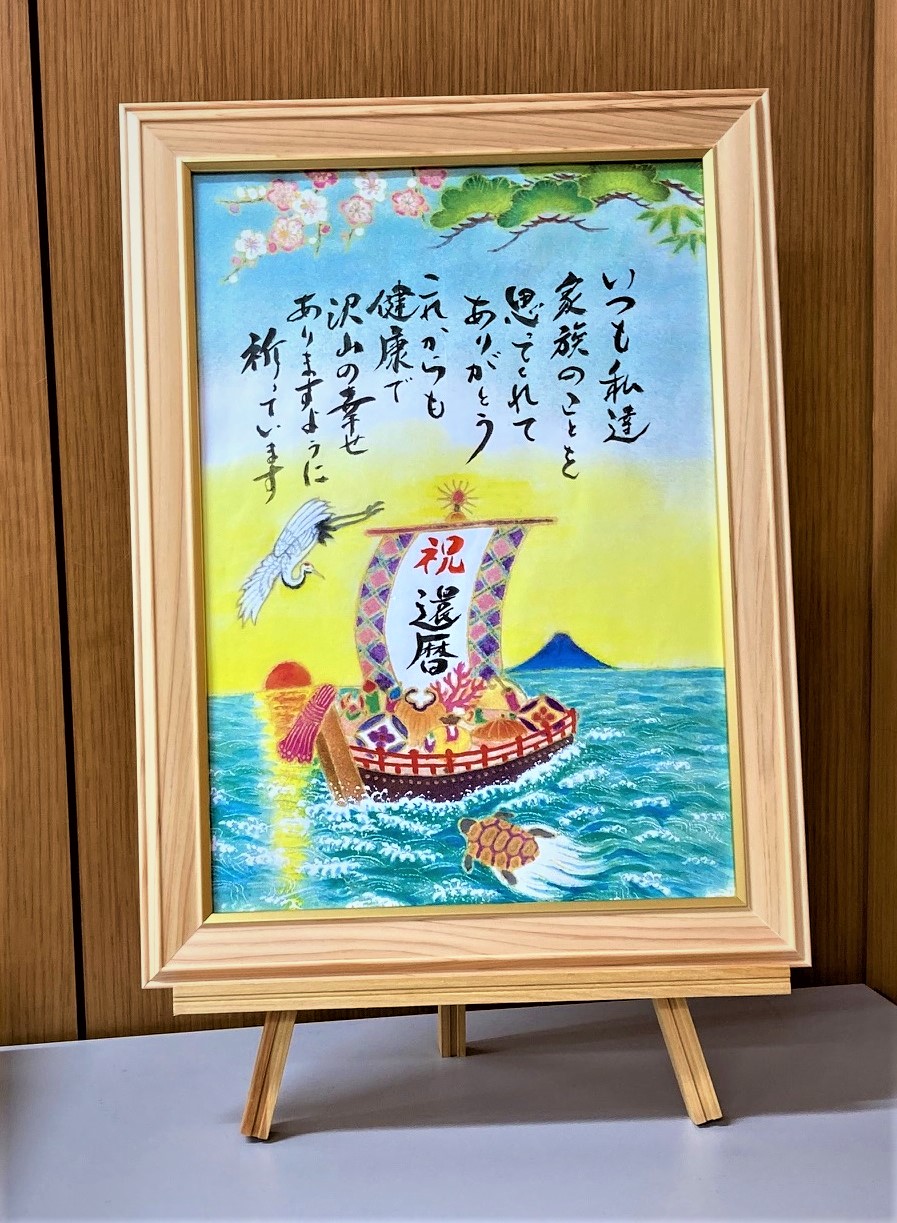 いつも私達
家族のことを
思ってくれて
ありがとう
これからも
健康で
沢山の幸せ
ありますように
祈っています
祝
還暦